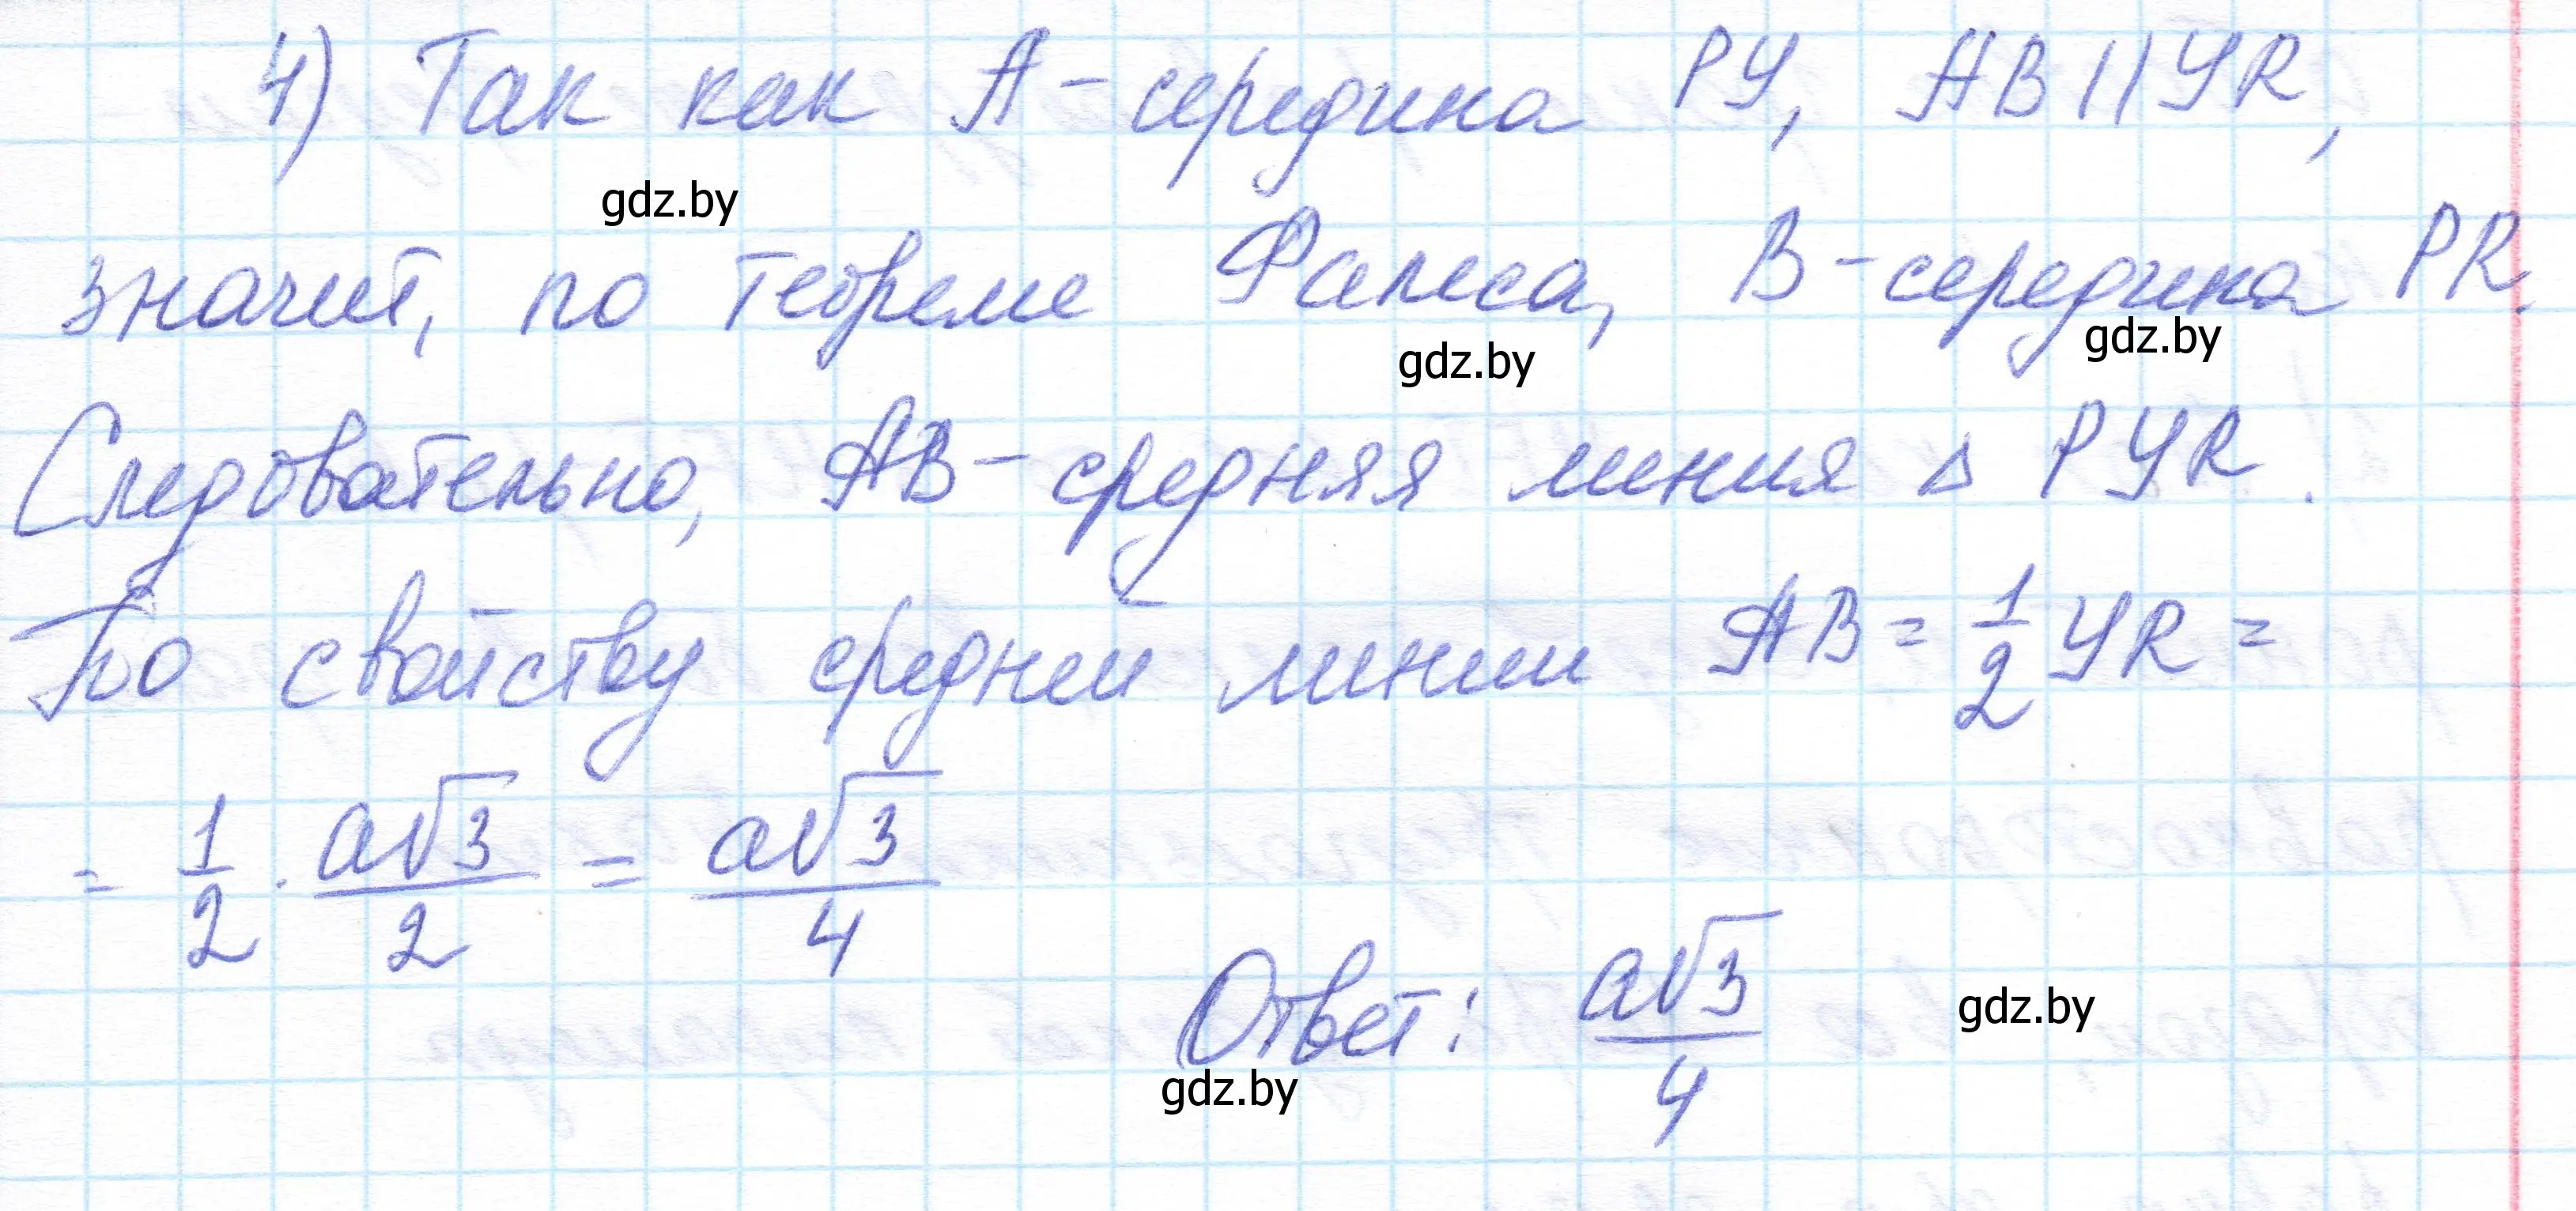 4) Так как A - середина PY, AB || YR,
gdz.by
значит, по теореме Фалеса, B - середина PR.
gdz.by
gdz.by
Следовательно, AB - средняя линия △ PYR.
По свойству средней линии AB = 1/2 YR =
= 1/2 · a√3/2 = a√3/4
Ответ: a√3/4
gdz.by
gdz.by